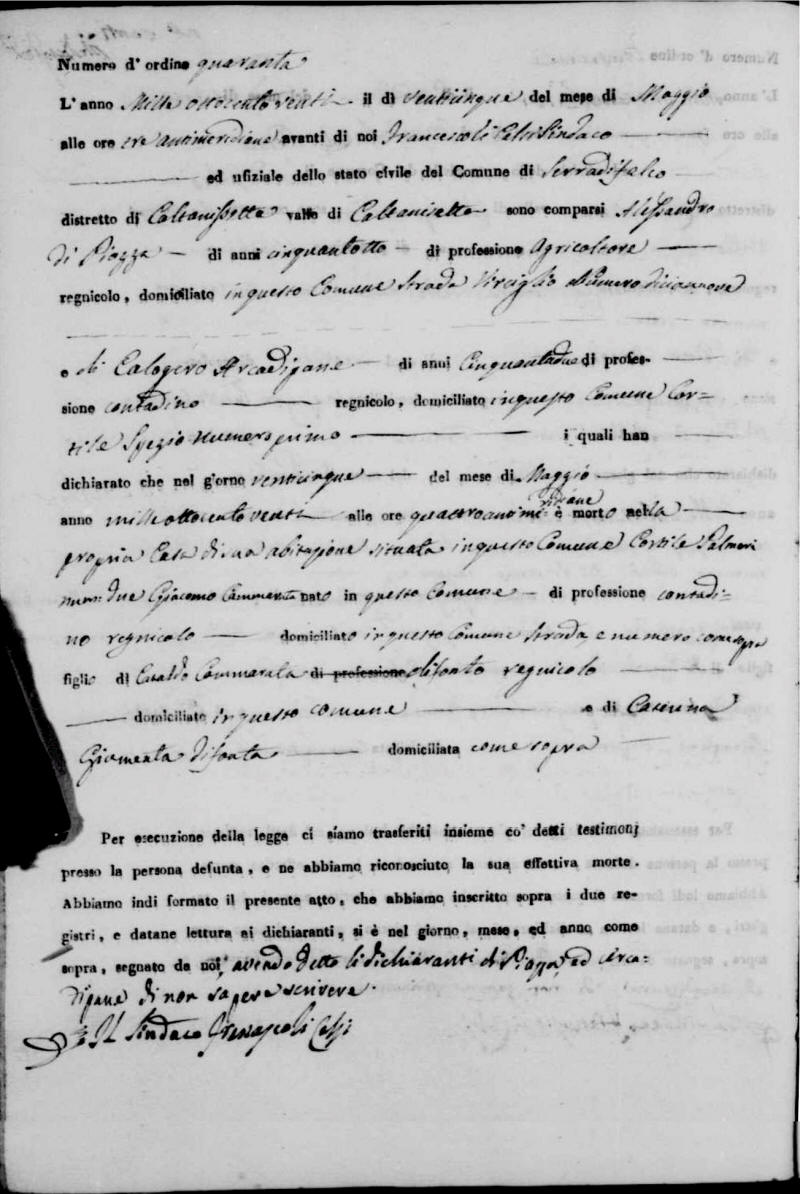 Numero d' ordine quaranta
L' anno Mille ottocento venti il dì venticinque del mese di Maggio
alle ore tre antimeridiane avanti di noi Sindaco
ed ufiziale dello stato civile del Comune di Serradifalco
distretto di Caltanissetta valle di Caltanisetta sono comparsi Alessandro
di Piazza di anni cinquantotto di professione Agricoltore
regnicolo, domiciliato in questo Comune Strada Virciglio al numero diciannove
e di Calogero Arcadipane di anni Cinquantadue di profes-
sione contadino regnicolo, domiciliato in questo Comune Cor=
tile Spezio numero primo i quali han
dichiarato che nel giorno venticinque del mese di Maggio
anno mille ottocento venti alle ore quattro antimeridiane è morto nella
propria Casa di sua abitazione situata in questo Comune Cortile Palmeri
num: due Giacomo Cammarata nato in questo Comune di professione contadi-
no regnicolo domiciliato in questo Comune Strada, e numero come sopra
figlio di Cammarata di professione difonto regnicolo
domiciliato in questo comune e di Caterina
Giamenta difonta domiciliata come sopra
Per esecuzione della legge ci siamo trasferiti insieme co' detti testimonj
presso la persona defunta, e ne abbiamo riconosciuto la sua effettiva morte.
Abbiamo indi formato il presente atto, che abbiamo inscritto sopra i due re-
gistri, e datane lettura ai dichiaranti, si è nel giorno, mese, ed anno come
sopra, segnato da noi, avendo detto li dichiaranti di Piazza, ed Arca=
dipane di non sapere scrivere.
Il Sindaco